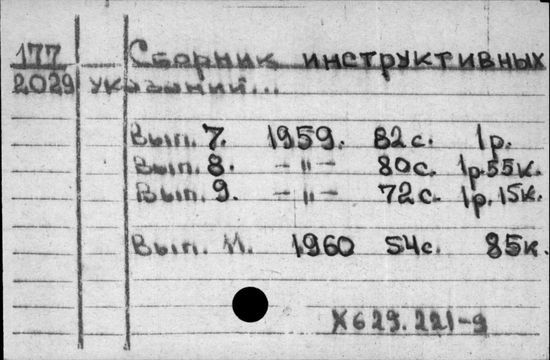 177 Сборник инструктивных
2029 указаний...
Вып. 7. 1959. 82с. 1р.
Вып. 8. — " — 80с. 1р.55к.
Вып. 9. — " — 72с. 1р.15к.
Вып. 11. 1960 54с. 85к.
X629.221-9